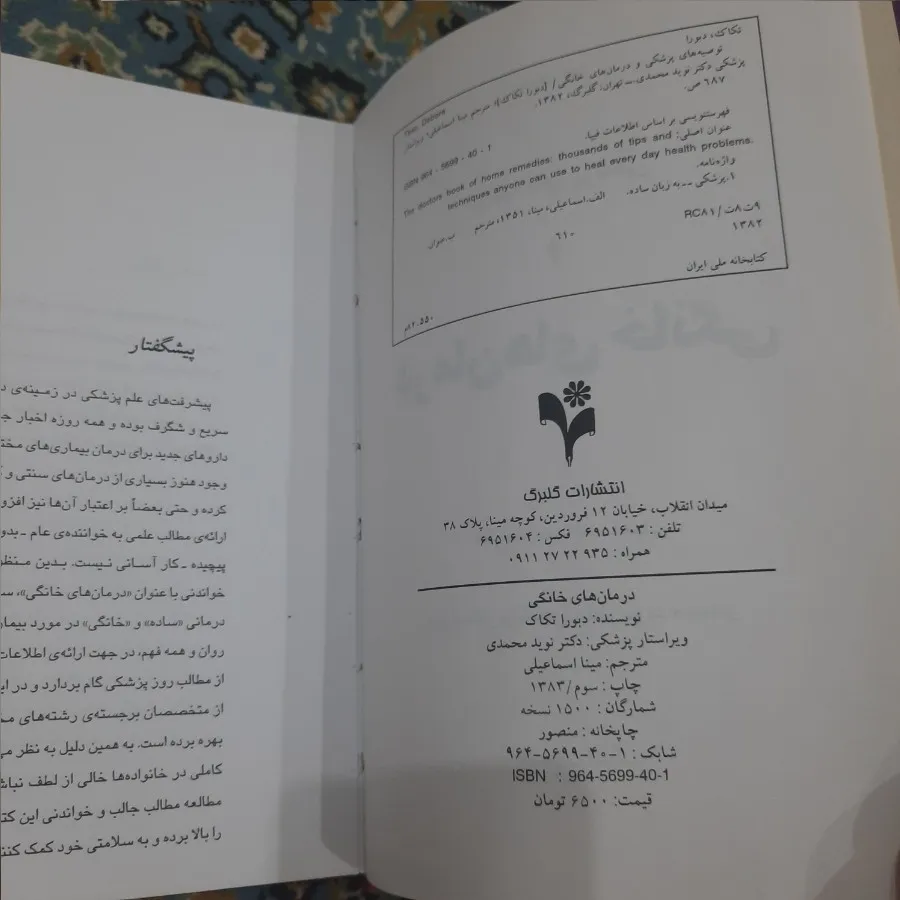 تکاک، دبورا
Tkac, Debora
توصیه‌های پزشکی و درمان‌های خانگی / [دبورا تکاک]؛ مترجم مینا اسماعیلی؛ ویراستار
پزشکی دکتر نوید محمدی. ــ تهران: گلبرگ، ۱۳۸۲.
۶۸۷ ص.
ISBN 964 - 5699 - 40 - 1
فهرستنویسی بر اساس اطلاعات فیپا.
عنوان اصلی: The doctors book of home remedies: thousands of tips and
techniques anyone can use to heal every day health problems.
واژه‌نامه.
۱.پزشکی ــ به زبان ساده. الف.اسماعیلی، مینا، ۱۳۵۱، مترجم ب.عنوان
۹ت۸ت/RC۸۱ ۶۱۰
۱۳۸۲
کتابخانه ملی ایران
انتشارات گلبرگ
میدان انقلاب، خیابان ۱۲ فروردین، کوچه مینا، پلاک ۳۸
تلفن : ۶۹۵۱۶۰۳ فکس : ۶۹۵۱۶۰۴
همراه : ۹۳۵ ۲۲ ۲۷ ۰۹۱۱
درمان‌های خانگی
نویسنده: دبورا تکاک
ویراستار پزشکی: دکتر نوید محمدی
مترجم: مینا اسماعیلی
چاپ : سوم/۱۳۸۳
شمارگان : ۱۵۰۰ نسخه
چاپخانه : منصور
شابک : ۱-۴۰-۵۶۹۹-۹۶۴
ISBN : 964-5699-40-1
قیمت: ۶۵۰۰ تومان
پیشگفتار
پیشرفت‌های علم پزشکی در زمینه‌ی
سریع و شگرف بوده و همه روزه اخبار
داروهای جدید برای درمان بیماری‌های
وجود هنوز بسیاری از درمان‌های سنتی و
کرده و حتی بعضاً بر اعتبار آن‌ها نیز
ارائه‌ی مطالب علمی به خواننده‌ی عام ـ
پیچیده ـ کار آسانی نیست. بدین
خواندنی با عنوان «درمان‌های خانگی»،
درمانی «ساده» و «خانگی» در مورد
روان و همه فهم، در جهت ارائه‌ی
از مطالب روز پزشکی گام بردارد و در
از متخصصان برجسته‌ی رشته‌های
بهره برده است. به همین دلیل به نظر
کاملی در خانواده‌ها خالی از لطف
مطالعه مطالب جالب و خواندنی این
را بالا برده و به سلامتی خود کمک